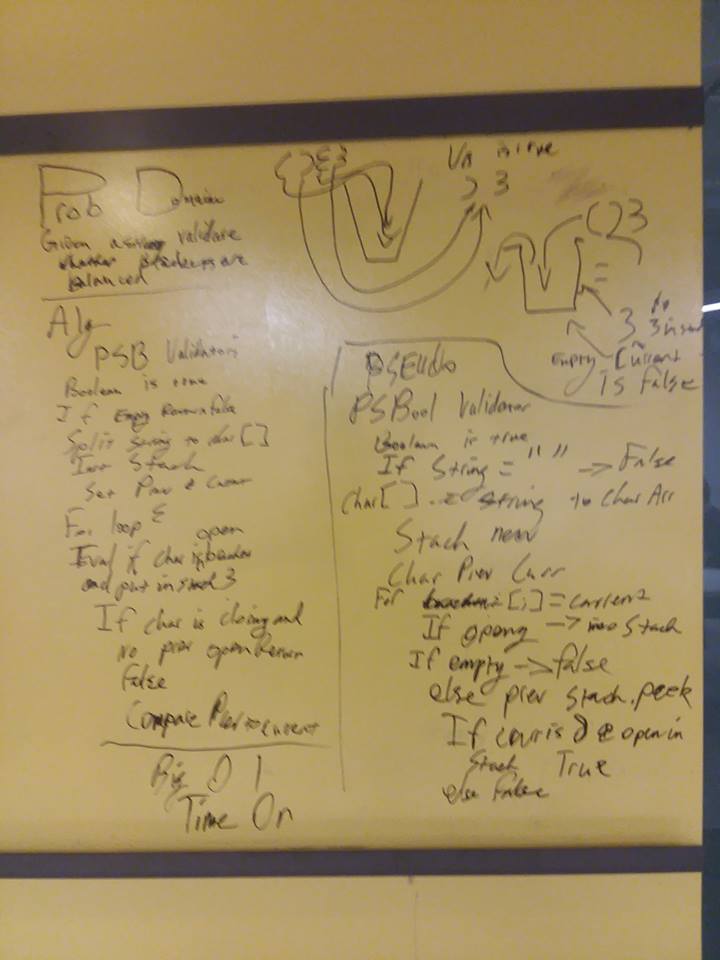 Prob Domain
Given a string validate
whether brackets are
balanced
Alg
PSB Validator
Boolean is true
If Empty Return false
Split string to char[]
Inst Stack
Set Prev &
For loop {
open
Eval if char is
and put in stack }
If char is closing and
no prior open Return
false
Compare Prev to current
Big O 1
Time On
{ } { }
) }
( ) }
=
}
empty Current
is false
PSEUdo
PSBool Validator
Boolean is true
If String = " " -> False
Char[] = String to Char Arr
Stack new
Char Prev Curr
For [i] = current
If opening -> into Stack
If empty -> false
else prev stack.peek
If curr is } & open in
Stack True
else False